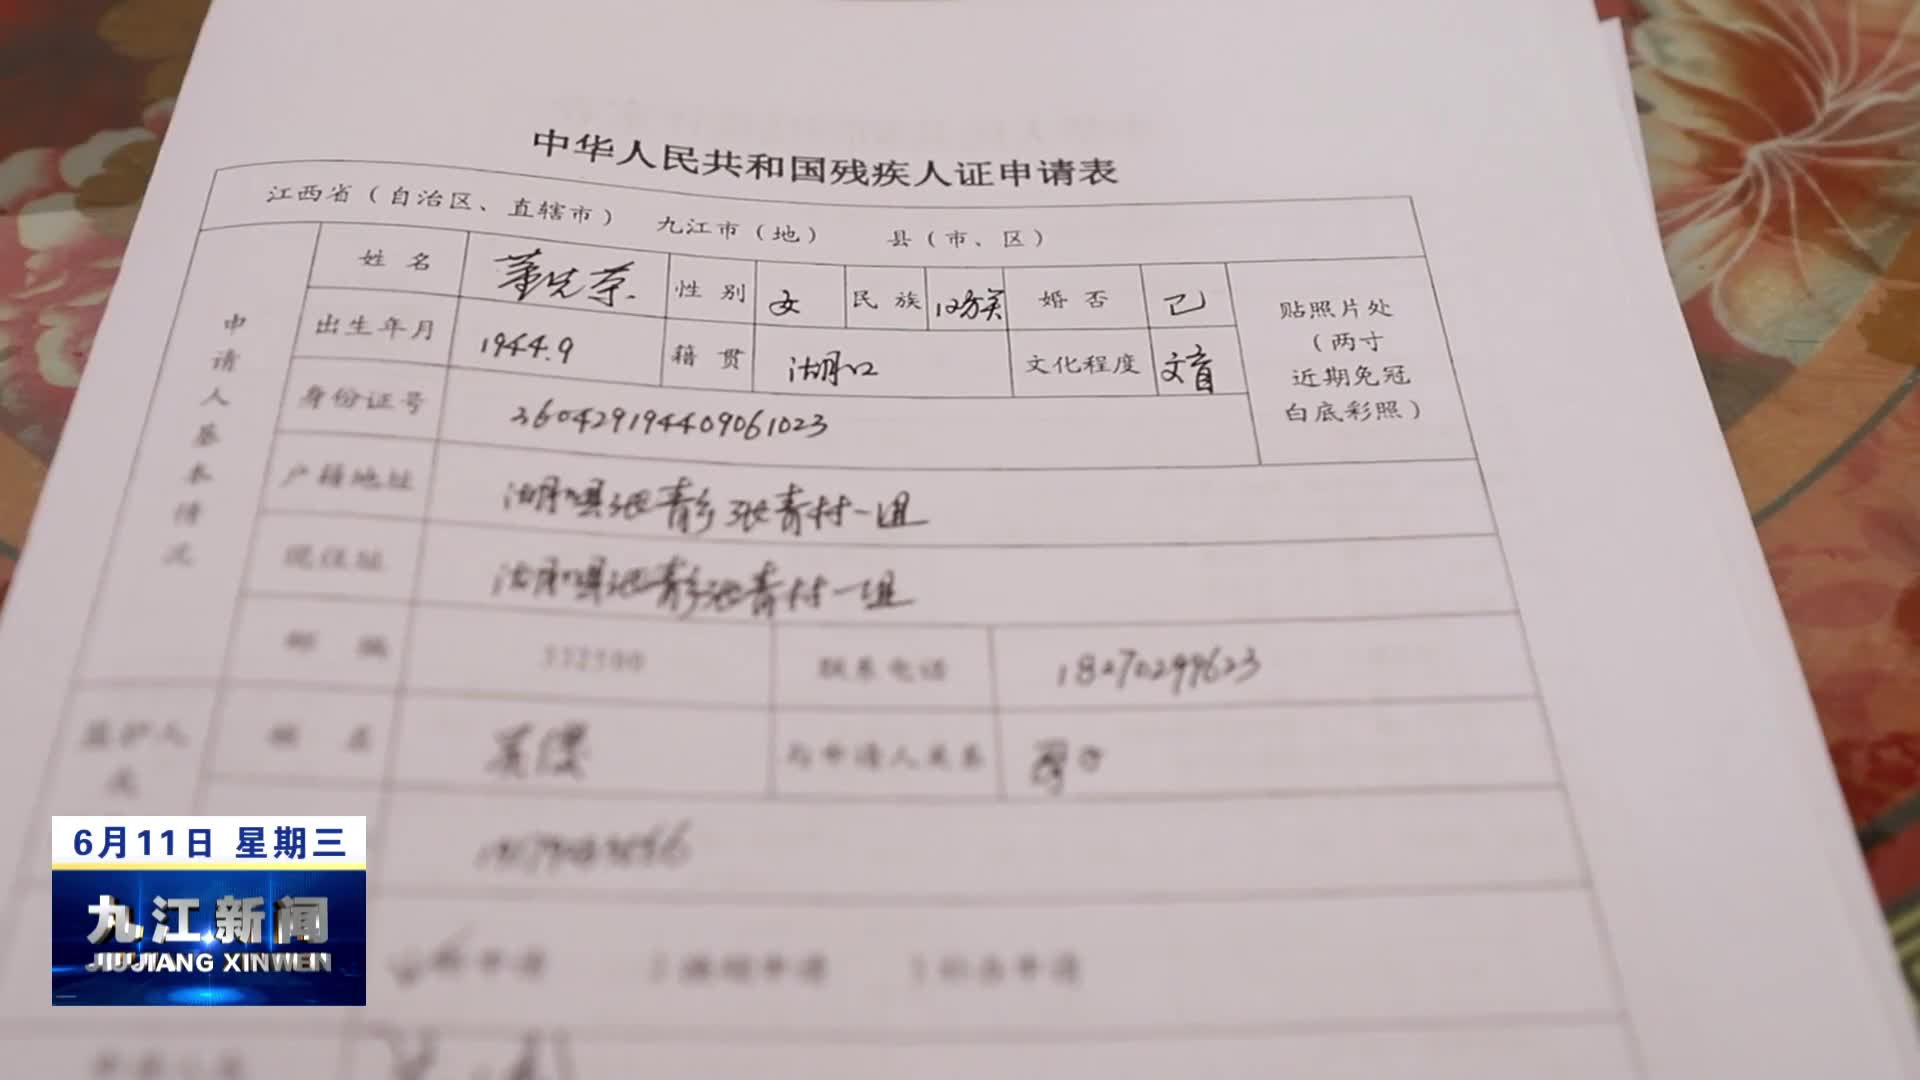 中华人民共和国残疾人证申请表
江西省（自治区、直辖市） 九江市（地） 县（市、区）
申请人基本情况
姓 名 董先荣 性 别 女 民 族 汉族 婚 否 已
贴照片处（两寸近期免冠白底彩照）
出生年月 1944.9 籍 贯 湖口 文化程度 文盲
身份证号 360429194409061023
户籍地址 湖口县张青乡张青村一组
现住址 湖口县张青乡张青村一组
邮 编 332500 联系电话 18270299623
监护人 姓 名 与申请人关系
6月11日 星期三
九江新闻
JIUJIANG XINWEN